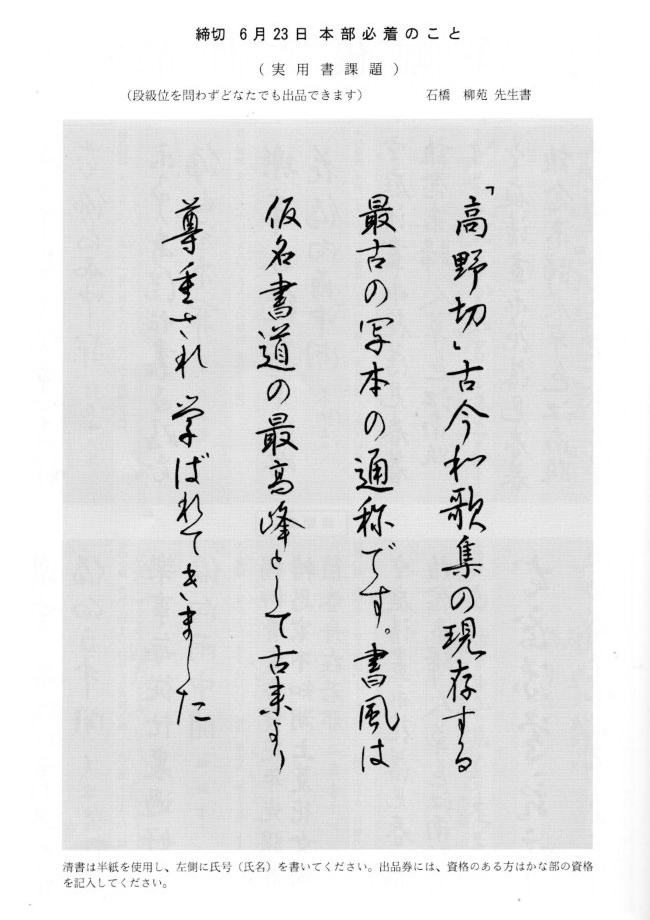 締切 6月23日 本部必着のこと
(実用書課題)
(段級位を問わずどなたでも出品できます) 石橋 柳苑 先生書
「高野切」古今和歌集の現存する
最古の写本の通称です。書風は
仮名書道の最高峰として古来より
尊重され学ばれてきました
清書は半紙を使用し、左側に氏号(氏名)を書いてください。出品券には、資格のある方はかな部の資格
を記入してください。